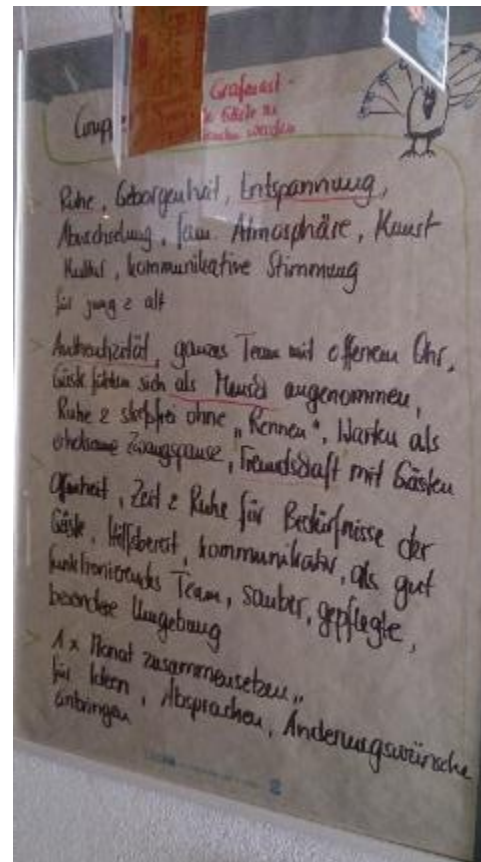 Grafenast -
Gruppe Gäste zu
werden
Ruhe, Geborgenheit, Entspannung,
Abwechslung, fam. Atmosphäre, Kunst
Kultur, kommunikative Stimmung
für jung & alt
Authentizität, ganzes Team mit offenem Ohr,
Gäste fühlen sich als Mensch angenommen,
Ruhe & streßfrei ohne „Rennen", Warten als
erholsame Zwangspause, Freundschaft mit Gästen
Offenheit, Zeit & Ruhe für Bedürfnisse der
Gäste, Hilfsbereit, kommunikativ, als gut
funktionierendes Team, sauber, gepflegte,
besondere Umgebung
1x Monat zusammensetzen,,
für Ideen, Absprachen, Änderungswünsche
anbringen